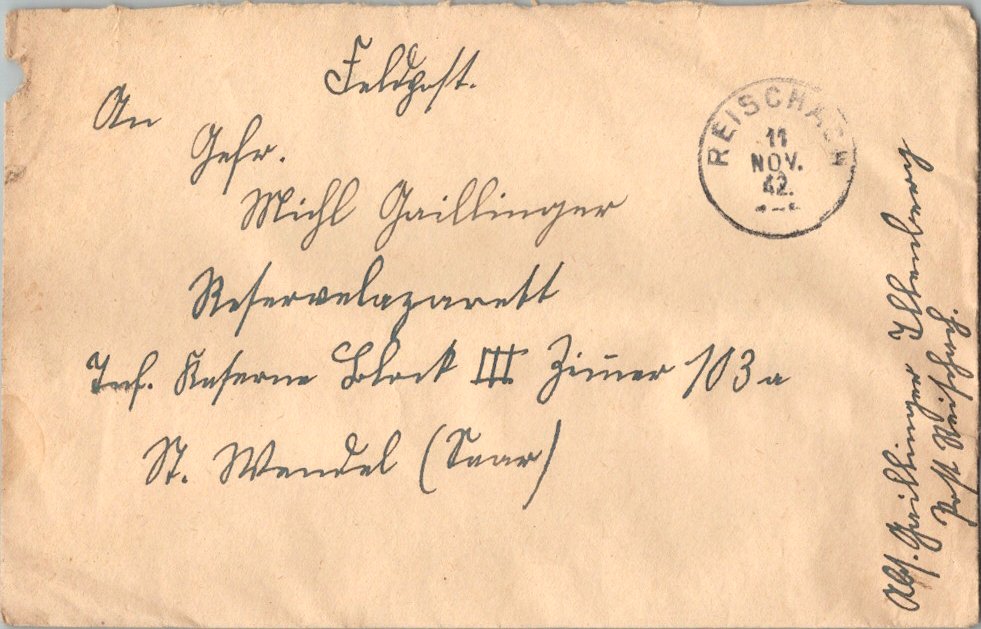 Feldpost.
An
Gefr.
Michl Gaillinger
Reservelazarett
Inf. Kaserne Block III Zimmer 103a
St. Wendel (Saar)
REISCHACH
11
NOV.
42.
Abs. Gaillinger
Post Reischach.